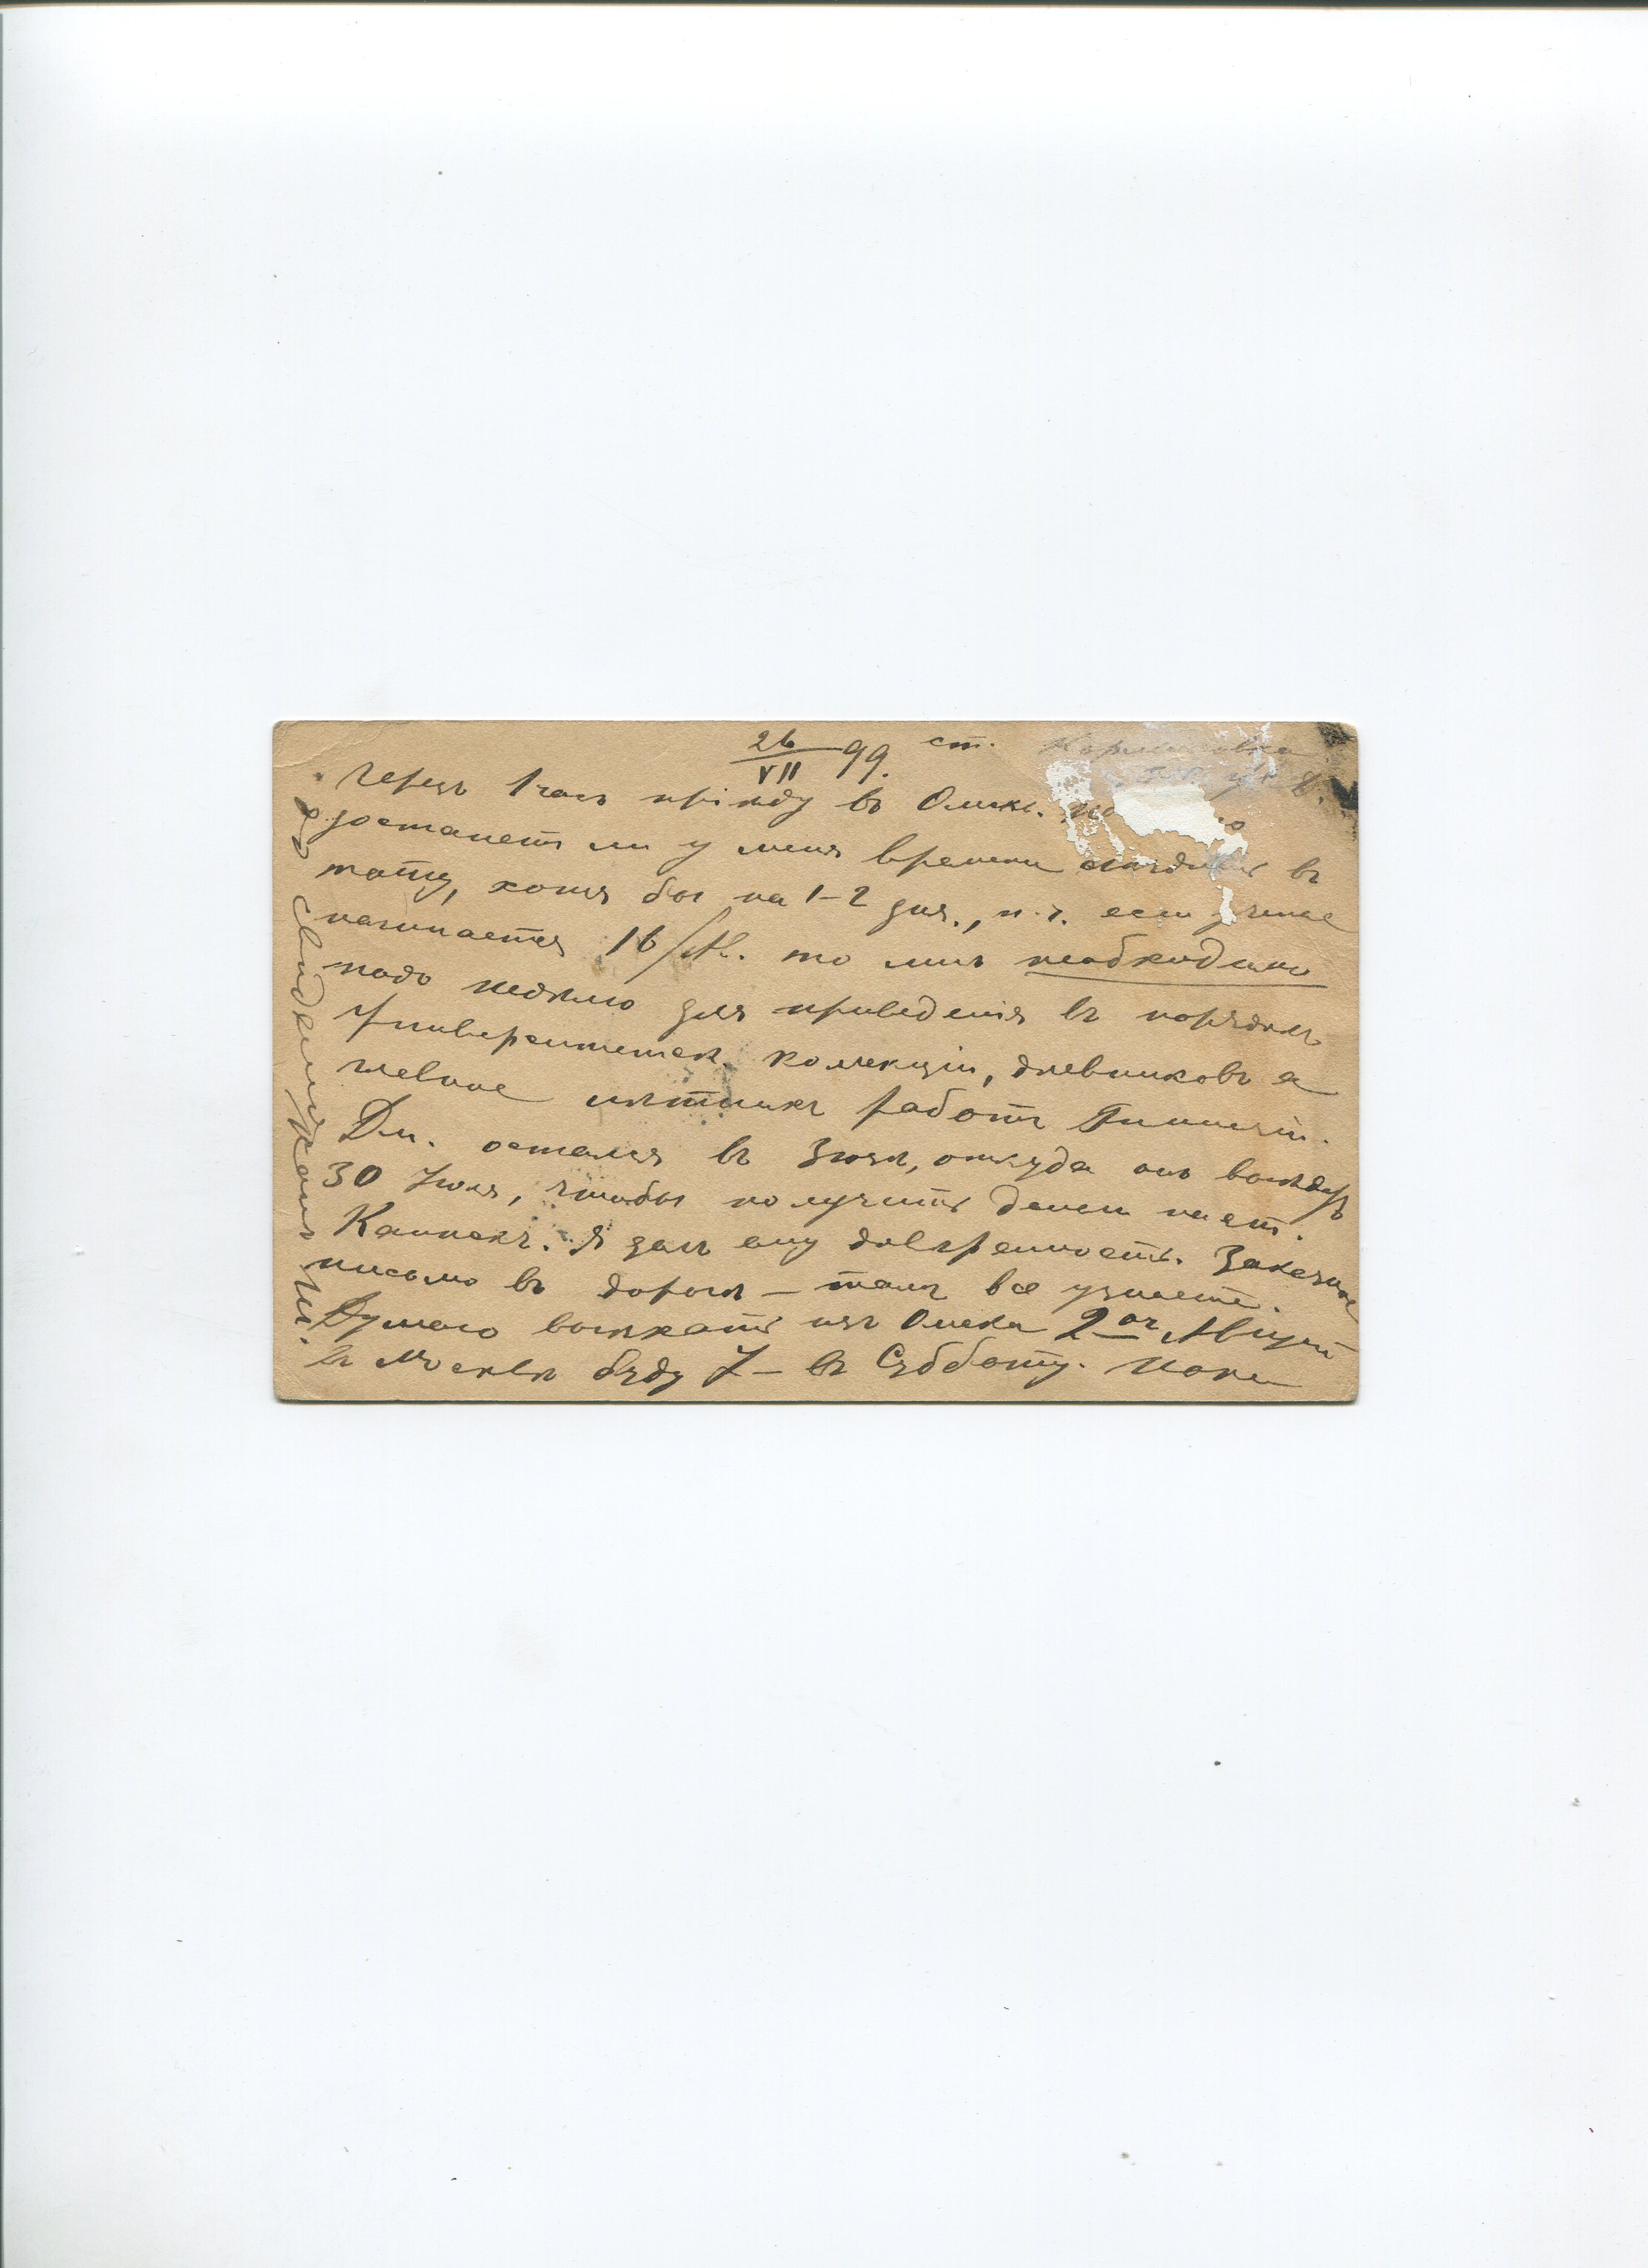 26/VII 99. ст. Кормиловка
Черезъ 1 часъ пріѣду въ Омскъ. Не
достанетъ ли у меня времени съѣздить въ
хотя бы на 1-2 дня., п. ч. если ученье
начинается 16/Авг. то мнѣ необходимо
надо недѣлю для приведенія въ порядокъ
Университетск. коллекціи, дневниковъ а
главное лѣтнихъ работъ Гимназіи.
Дм. остался въ откуда онъ выѣдетъ
30 Іюля, чтобы получить деньги на ст.
Каинскъ. Я далъ ему довѣренность. Заказное
письмо въ дорогѣ – тамъ все узнаете.
Думаю выѣхать изъ Омска 2ог Августа
въ Москвѣ буду 7 – въ Субботу. Пока
до свиданія